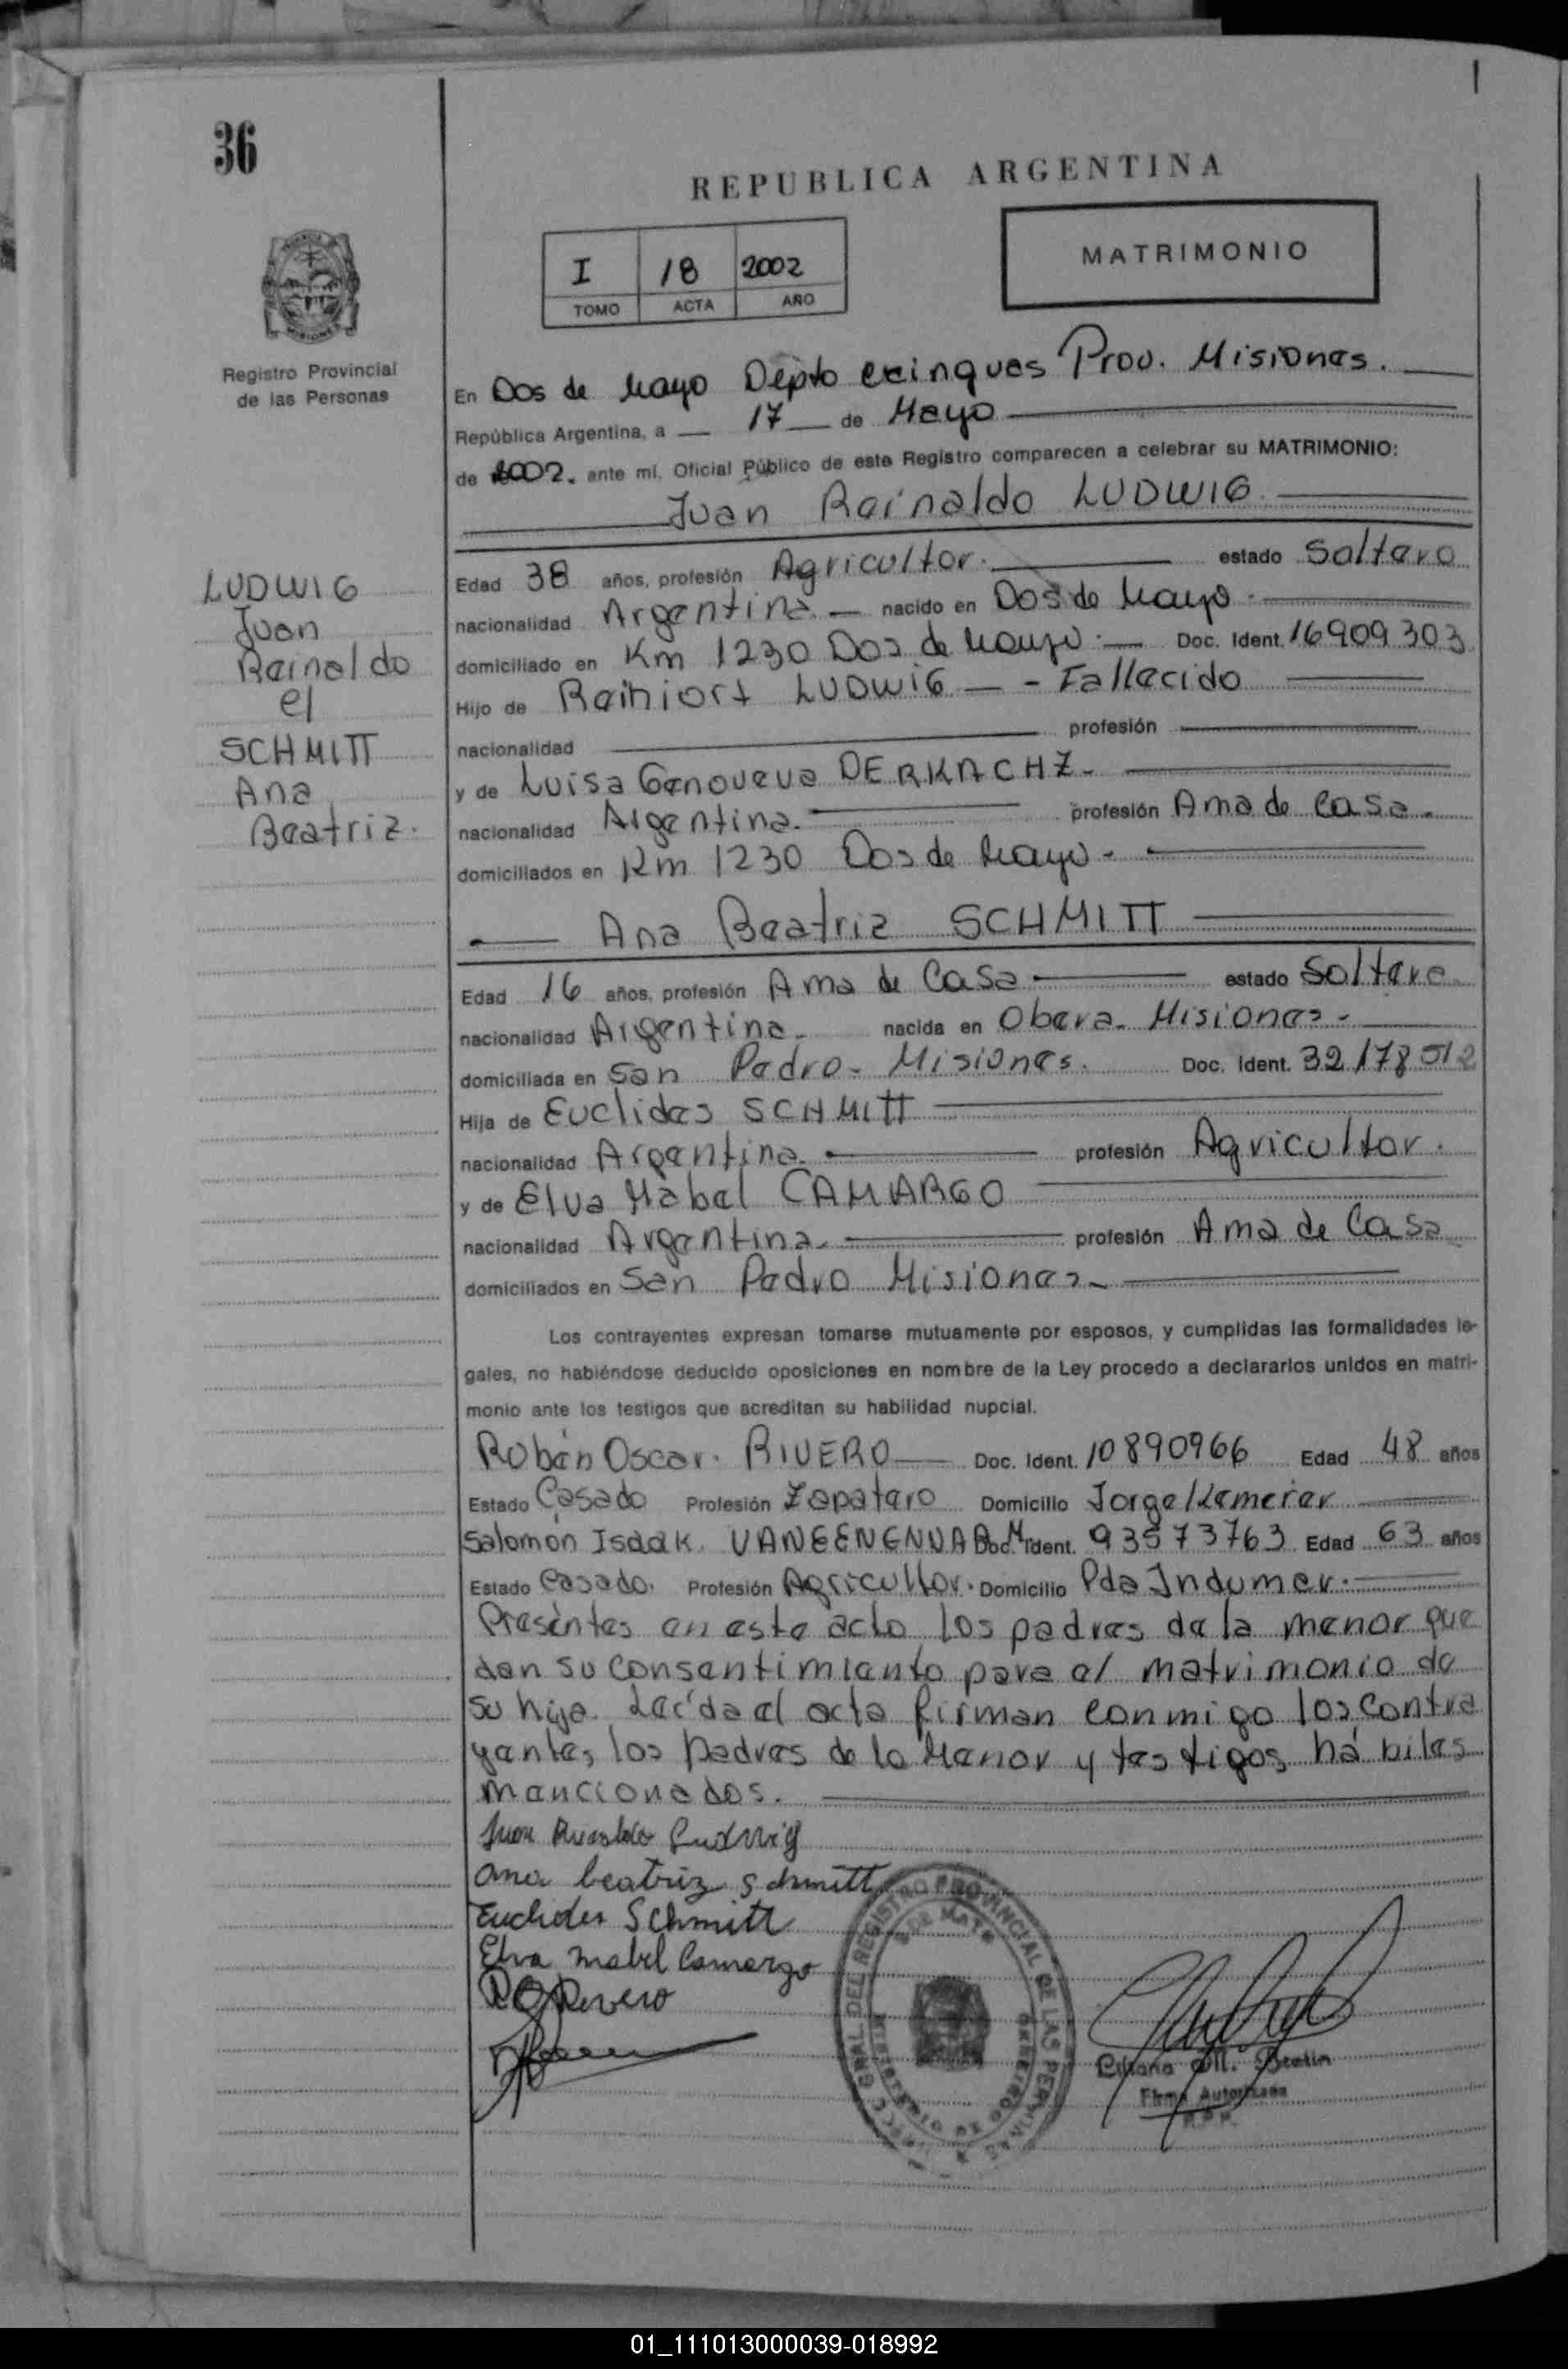 36
REPUBLICA ARGENTINA
I 18 2002
TOMO ACTA AÑO
MATRIMONIO
Registro Provincial
de las Personas
En Dos de Mayo Depto Cainguas Prov. Misiones.
República Argentina, a 17 de Mayo
de 2002. ante mí. Oficial Público de este Registro comparecen a celebrar su MATRIMONIO:
Juan Reinaldo LUDWIG.
LUDWIG
Juan
Reinaldo
el
SCHMITT
Ana
Beatriz.
Edad 38 años, profesión Agricultor. estado Soltero
nacionalidad Argentina. nacido en Dos de Mayo.
domiciliado en Km 1230 Dos de Mayo. Doc. Ident. 16909303
Hijo de LUDWIG - Fallecido
nacionalidad profesión
y de Luisa Genoveva DERKACHZ.
nacionalidad Argentina. profesión Ama de Casa.
domiciliados en Km 1230 Dos de Mayo.
Ana Beatriz SCHMITT
Edad 16 años, profesión Ama de Casa estado Soltera
nacionalidad Argentina. nacida en Obera. Misiones.
domiciliada en San Pedro. Misiones. Doc. Ident. 32178512
Hija de Euclides SCHMITT
nacionalidad Argentina. profesión Agricultor.
y de Elva Mabel CAMARGO
nacionalidad Argentina. profesión Ama de Casa
domiciliados en San Pedro Misiones.
Los contrayentes expresan tomarse mutuamente por esposos, y cumplidas las formalidades le-
gales, no habiéndose deducido oposiciones en nombre de la Ley procedo a declararlos unidos en matri-
monio ante los testigos que acreditan su habilidad nupcial.
Rubén Oscar. RIVERO Doc. Ident. 10890966 Edad 48 años
Estado Casado Profesión Zapatero Domicilio Jorge
Salomón Isaak. Doc. Ident. 93573763 Edad 63 años
Estado Casado. Profesión Agricultor. Domicilio Pda Indumar.
Presentes en este acto los padres de la menor que
dan su consentimiento para el matrimonio de
su hija. Leída el acta firman conmigo los contra
yentes, los padres de la Menor y testigos hábiles
mencionados.
Juan Ludwig
ana beatriz schmitt
Euclides Schmitt
Elva mabel Camargo
Rivero
DEL REGISTRO PROVINCIAL DE LAS PERSONAS
Firma Autorizada
R.P.P.
01_111013000039-018992